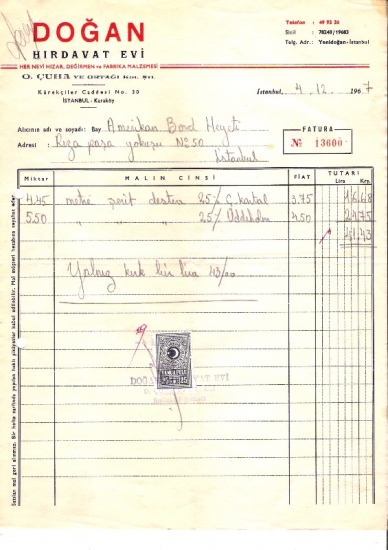 DOĞAN
HIRDAVAT EVİ
HER NEVİ HIZAR, DEĞİRMEN ve FABRİKA MALZEMESİ
O. ÇUHA VE ORTAĞI KOL. ŞTİ.
Kürekçiler Caddesi No. 30
İSTANBUL - Karaköy
Telefon : 49 92 36
Sicil : 78249/19683
Telg. Adr.: Yenidoğan-İstanbul
İstanbul, 4.12.1967
Alıcının adı ve soyadı: Bay Amerikan Bord Heyeti
Adresi : Riza paşa yokuşu No 50
İstanbul
FATURA
No 13600
Miktar MALIN CİNSİ FİAT TUTARI
Lira Krş.
4.45 metre şerit destere 25% Ç. kartal 3.75 16.68
5.50 " " 25% Uddeholm 4.50 24.75
41.43
Yalnız kırk bir lira 43/00
DOĞAN HIRDAVAT EVİ
Satılan mal geri alınmaz.